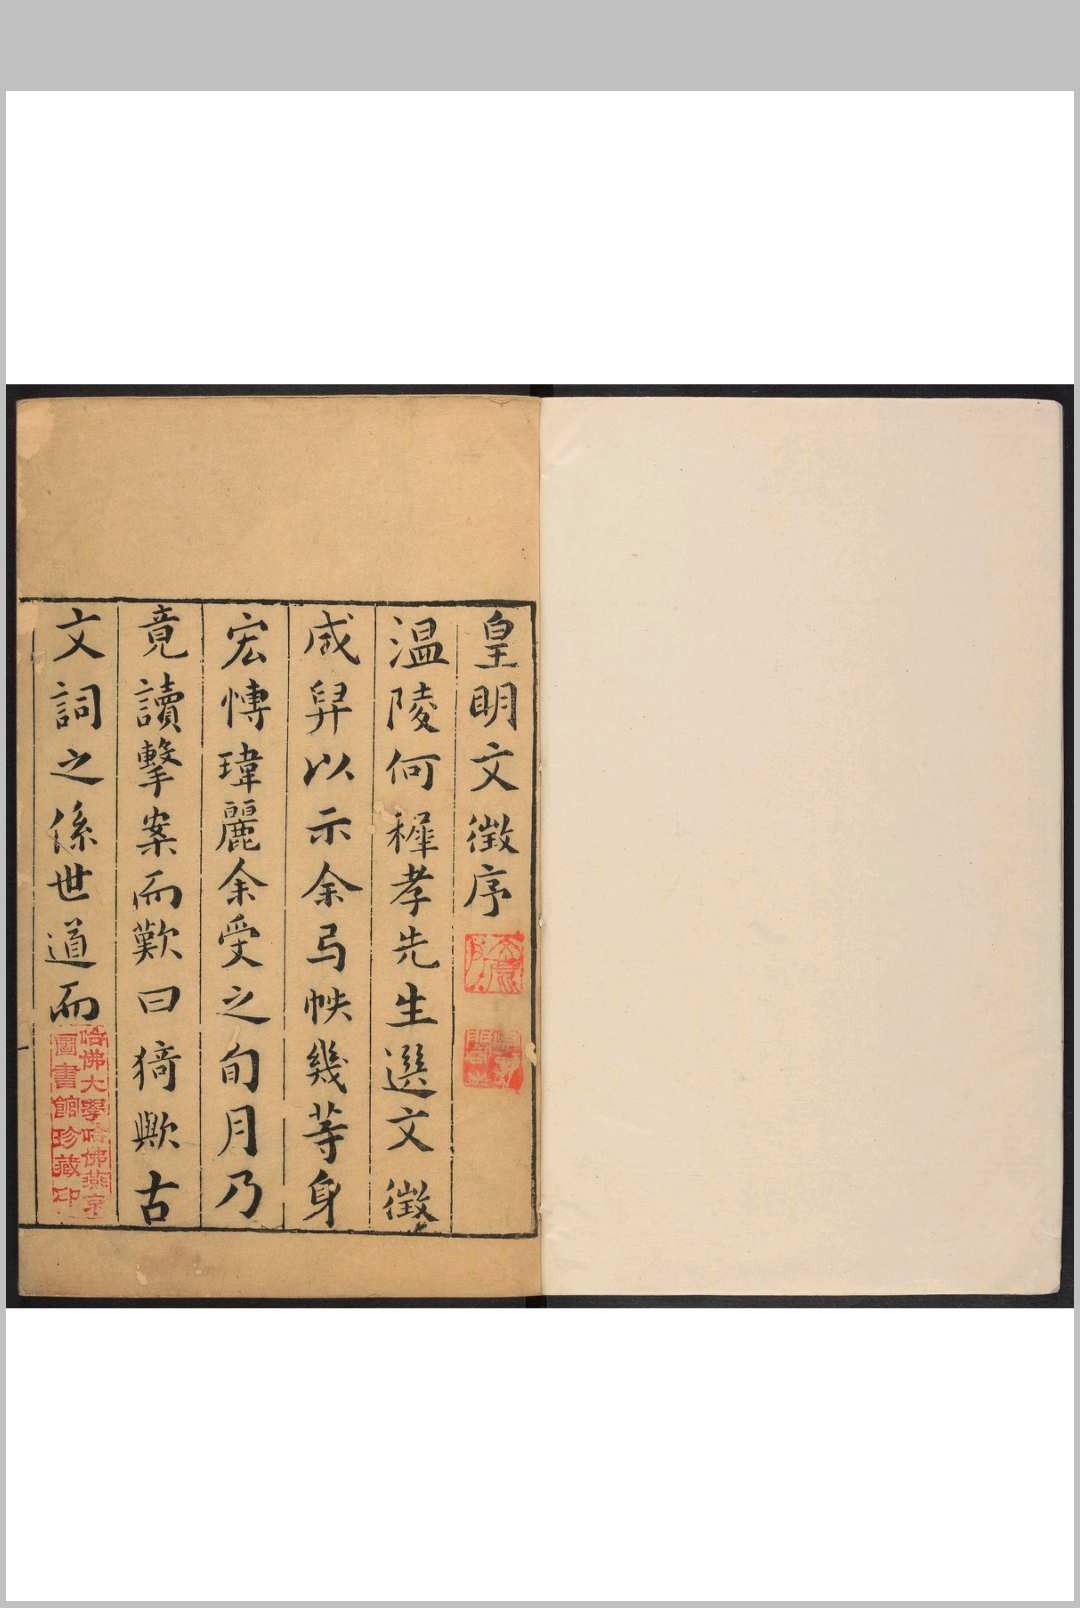 皇明文徵序
溫陵何穉孝先生選文徵
成舁以示余弓帙幾等身
宏愽瑋麗余受之旬月乃
竟讀擊案而歎曰猗歟古
文詞之係世道而
哈佛大學哈佛燕京
圖書館珍藏印